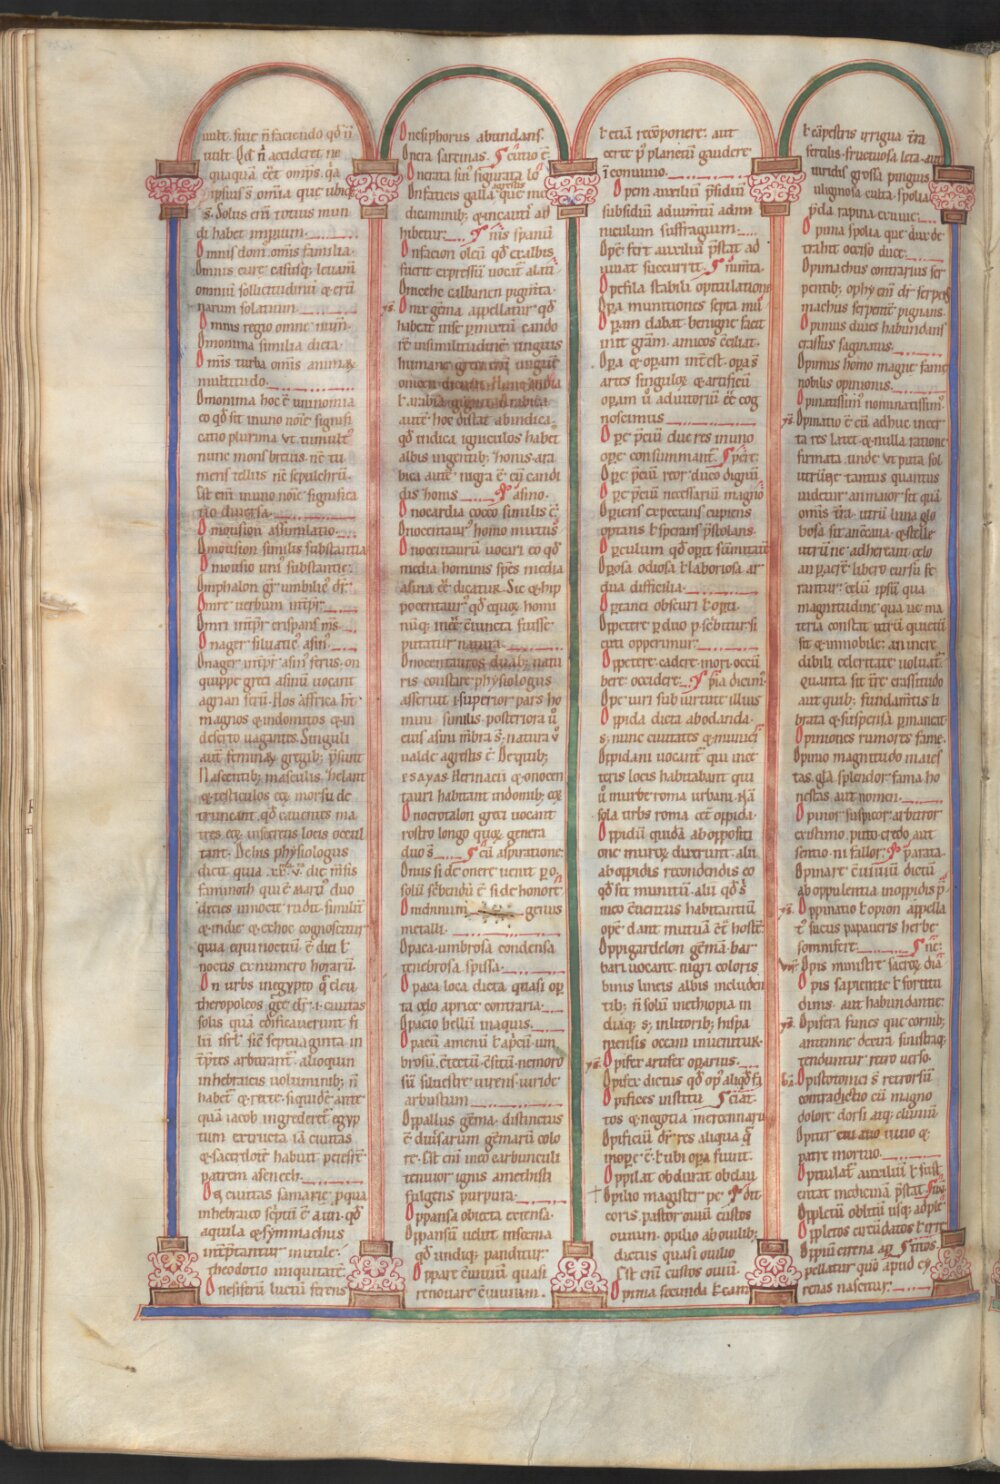 uult. siue n̄ faciendo qđ ū
uult. Qđ n̄ accideret ne
quaquā
di habet imperium
Omnis dom̄. omīs familia.
narum solatium
Omnis regio omne
Omonima similia dicta.
Omīs turba omīs
multitudo.
Omonima hoc ē uninomia
eo qđ sit in uno noīe signifi
catio plurima ut tumulꝰ
nunc mons breuis. nē tu
mens tellus nē sepulchrū.
Est enī in uno noīe significa
tio diuersa.
Omousion assimilatio
Omousion similis substantia
Omousio unꝰ substantie.
Omphalon gr̄ umbilicꝰ dr̄.
Omre uerbum int̄pr̄.
Omri int̄pr̄ crispans mꝰ.
Onager siluaticꝰ asinꝰ.
Onager int̄pr̄ asinꝰ ferus. on
quippe greci asinū uocant
agrian ferū. Hos affrica ht̄
magnos & indomitos & in
deserto uagantes. Singuli
aut̄ feminaꝝ gregibꝫ p̄sunt
Nascentibꝫ masculis zelant
& testiculos eoꝝ morsu de
truncant. qđ cauentes ma
tres eoꝝ in secretis locis occul
tant. De his phẏsiologus
dicit quia
faminoth qui ē marꝰ duo
decies in nocte rudit similit̄
& in die. & ex hoc cognoscitur
quia equinoctiū ē diei ł
noctis ex numero horarū
On urbs in egypto
theropoleos grece dr̄. i. ciuitas
solis quā edificauerunt fi
lii isrł sic̄ septuaginta in
t̄p̄tes arbitrant̄. alioquin
in hebraicis uoluminibꝫ n̄
habet̄ & recte. siquidē ante
quā iacob ingrederet̄ egyp
tum extructa iā ciuitas
& sacerdotē habuit
patrem asenech.
Oꝰ ciuitas samarie p̱ qua
in hebraico sc̄ptū ē aun. qđ
aquila & symmachus
int̄p̄tantur inutile.
theodotio iniquitatē.
Onesiferū lucrū ferens
Onesiphorus abundans.
Onera sarcinas. ꝯcutio ē
Onerata
Onfaticis galla agrestis que me
dicaminibꝫ & incausti ad
hibetur. nꝰ spanū
Onfacion oleū qđ ex albis
fuerit expressū uocat̄ alati
Oneche galbanen pigm̄ta.
Onix gēma appellatur qđ
habeat in se p̱mixtū cando
rē in similitudinē unguis
humani. greci enī unguē
onicen dicunt. Hunc india
ł arabia gignit. Arabica
aut̄ hoc distat ab indica.
qđ indica igniculos habet
albis cingentibꝫ zonis. ara
bica aut̄ nigra ē cū candi
dis zonis asino.
Onocardia cocco similis ē.
Onocentaurꝰ homo mixtus
Onocentaurū uocari eo qđ
media hominis sp̄es media
asina ē dicatur. Sic & hip
pocentaurꝰ qđ equoꝝ homi
nūqꝫ in eis ꝯiuncta fuisse
putatur natura.
Onocentauros duabꝫ natu
ris constare phẏsiologus
asserit. superior pars ho
mini similis. posteriora ū
eius asini m̄bra s̄. natura ū
ualde agrestis ē. De quibꝫ
esayas. Herinacii & onocen
tauri habitant in domibꝫ eoꝝ
Onocrotalon greci uocant
rostro longo quoꝝ genera
duo s̄. cū aspiratione
Onus si de onere uenit p̱ o.
solū sc̄bendū ē si de honore.
Onidnnum genus
metalli.
Opaca. umbrosa condensa
tenebrosa. spissa.
Opaca loca dicta quasi op̱
ta celo aprice contraria.
Opacio bellū inaquis
Opacū amenū ł ap̱cū. um
brosū. ꝯtectū ꝯsitū. nemoro
sū siluestre. uirens. uiride
arbustum
Oppallus gēma. distinctus
ē diuersarum gēmarū colo
re. Est enī in eo carbunculi
tenuior ignis. amethisti
fulgens purpura.
Oppansa obiecta extensa.
Oppansū uelut in scena
qđ undiqꝫ panditur
Oppare ꝯuiuiū quasi
renouare ꝯuiuium.
ł etiā reꝯponere. aut
certe p̱ planctū gaudere
in comuno.
Opem auxiliū p̄sidiū
subsidiū adiumtū admi
niculum suffragium
Ope fert auxiliū p̄stat ad
iuuat succurrit.
Opefila stabilis opitulatione
Opra munitiones septa muri
Opam dabat. benigne facit
init gratiam. amicos ꝯciliat.
Opa & opam int̄est. opas
artes singuloꝝ & artificū
opam ū adiutoriū ee cog
noscimus
Ope p̄ciū due res in uno
opere consummant̄.
Ope p̄ciū reor. duco dignū
Ope p̄ciū necessariū magnū
Opiens expectans cupiens
optans ł sperans p̄stolans.
Op̱culum qđ op̱it
Op̱osa odiosa ł laboriosa ar
dua difficilia
Op̱tanei obscuri ł op̱ti.
Oppetere p̱ duo p. sc̄bitur si
cuti opperimur.
Oppetere cadere. mori. occū
bere occidere. p̄ia dicim̄
Ope uiri sub uirtute illius
Oppida dicta ab odanda.
s. nunc ciuitates & munici
Oppidani uocant̄ qui in ce
teris locis habitabant. qui
ū in urbe roma urbani. Nā
sola urbs roma. cet̄ oppida.
Oppidū quidā ab oppositi
one muroꝝ dixerunt. alii
ab oppidis recondendis eo
qđ sit munitū. alii qđ
in eo ꝯuentus habitantiū
opē dant mutuā ꝯt hostē.
Oppigardelon gēmā bar
bari uocant. nigri coloris
binis lineis albis includen
tibꝫ. n̄ solū in ethiopia. in
diaqꝫ s̄ in litoribꝫ hispa
niensis occeani inuenitur.
Opifer artifex op̱arius.
Opifex dictus qđ opꝰ aliqđ fa
Opifices institu
tos & negotia mercennarii
Opificiū dr̄ res aliqua q̄
in ope ē ł ubi opa fiunt.
Oppilat obdurat obclau
Opilio magister pe
coris. pastor ouiū custos
ouium. opilio ab ouilibꝫ
dictus quasi ouilio
Est enī custos ouiū.
Opima fecunda ł eam
ł cāpestris irrigua t̄ra
fertilis. fructuosa leta. aut
uiridis grossa pinguis
uliginosa culta. spolia
p̄da rapina exuuie.
Opima spolia que dux de
trahit occiso duce.
Opimachus contrarius ser
pentibꝫ. ophy enī dr̄ serpens
machus serpentē pugnans.
Opimus diues habundans
crassus saginatus.
Opimus homo magne fame
nobilis opinionis.
Opinatissimꝰ nominatissimꝰ.
Opinatio ē cū adhuc incer
ta res latet & nulla ratione
firmata. unde ut puta sol
utrū sit tantus quantus
uidetur an maior sit quā
omīs t̄ra. utrū luna glo
bosa sit an ꝯcaua. & stelle
utrū ne adhereant celo
an p̱ aerē libero cursu fe
rantur. celū ipsū qua
magnitudine qua ue ma
teria constat. utrū quietū
sit & inmobile. an incre
dibili celeritate uoluat̄.
quanta sit t̄re crassitudo
aut quibꝫ fundamtis li
brata & suspensa p̱maneat
Opiniones rumores fame.
Opinio magnitudo maies
tas. gła. splendor. fama. ho
nestas aut nomen.
Opinor suspicor. arbitror
existimo. puto. credo. aut
sentio. ni fallor. parata.
Opinare ꝯuiuiū dictū
ab oppulentia in oppidis
Oppinatio ł opion appella
tꝰ sucus papaueris herbe
somnifere.
Opis ministre sacroꝝ diā
Opis sapientie ł fortitu
dinis. aut habundantie
Opisera funes que cornibꝫ
antenne dextra sinistraqꝫ
tenduntur retro uerso.
Opistotonici s̄ retrorsū
contradictio cū magno
dolore dorsi atqꝫ cluniū
Opiter cui auo uiuo &
patre mortuo.
Opitulat̄ auxiliū ł sust
entat medicinam p̄stat
Oppletū oblitū usqꝫ adple
Oppletos circūdatos ł
Oppiū cirina apꝰ
pellatur quō apud cẏ
renas nascitur.